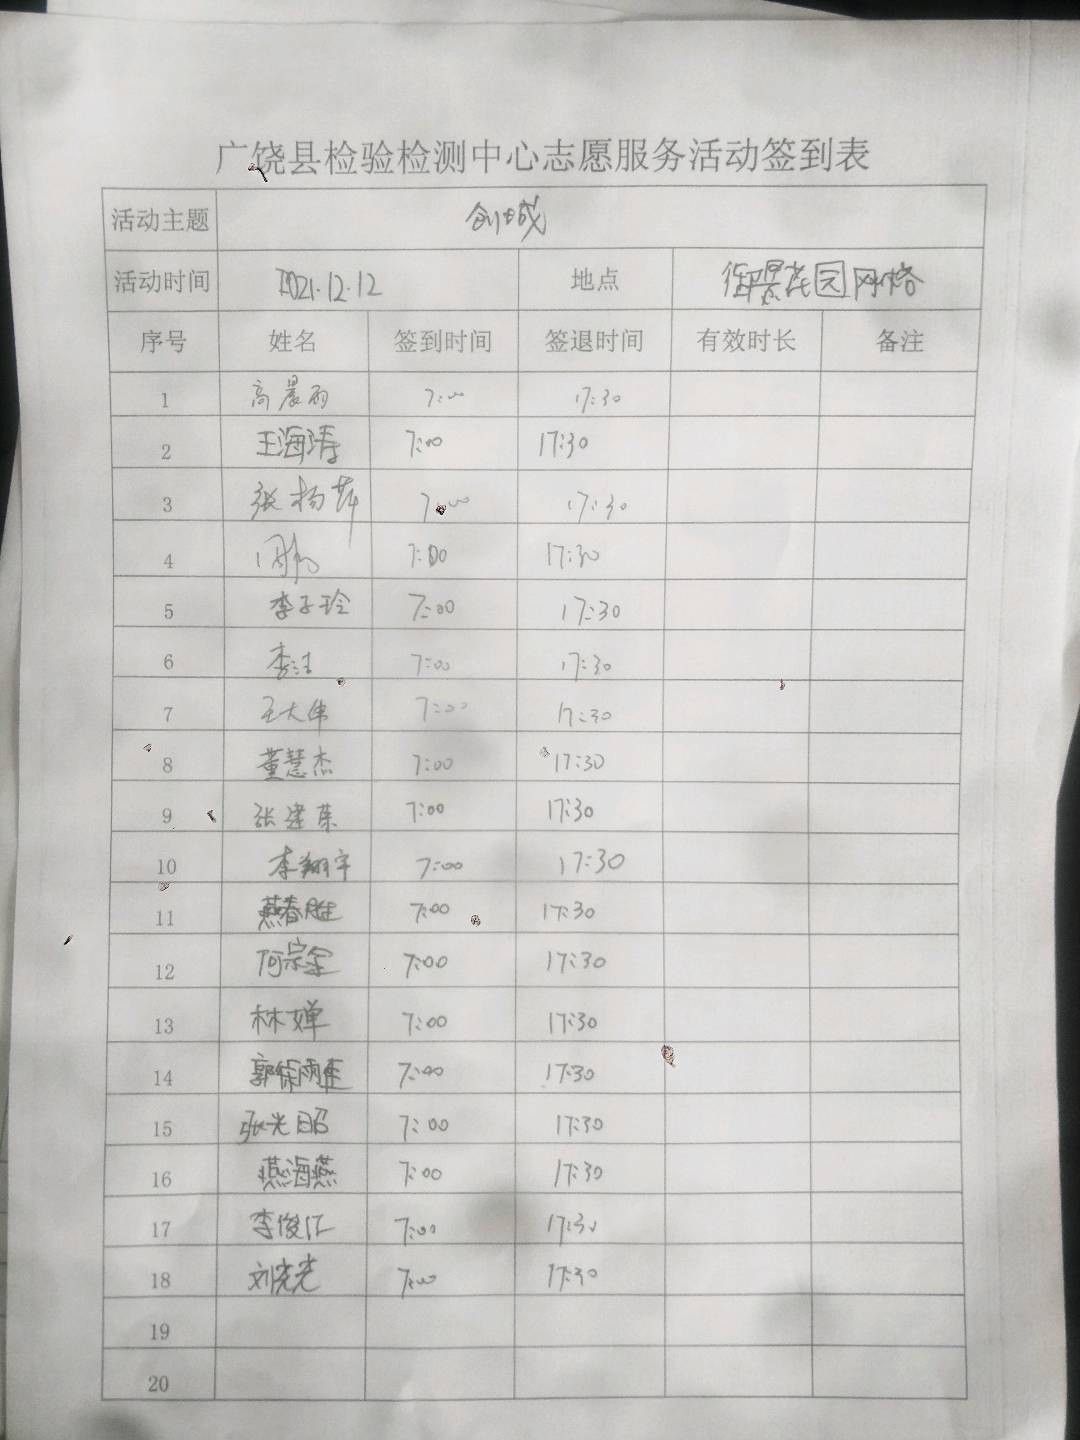 广饶县检验检测中心志愿服务活动签到表
活动主题 创城
活动时间 2021.12.12 地点 御景花园网格
序号 姓名 签到时间 签退时间 有效时长 备注
1 高晨雨 7:00 17:30
2 王海涛 7:00 17:30
3 张杨萍 7:00 17:30
4 7:00 17:30
5 李子玲 7:00 17:30
6 李汪 7:00 17:30
7 王大伟 7:00 17:30
8 董慧杰 7:00 17:30
9 张建荣 7:00 17:30
10 李翔宇 7:00 17:30
11 燕春胜 7:00 17:30
12 何宗金 7:00 17:30
13 林婵 7:00 17:30
14 7:00 17:30
15 张光昭 7:00 17:30
16 燕海燕 7:00 17:30
17 李俊江 7:00 17:30
18 刘亮亮 7:00 17:30
19
20